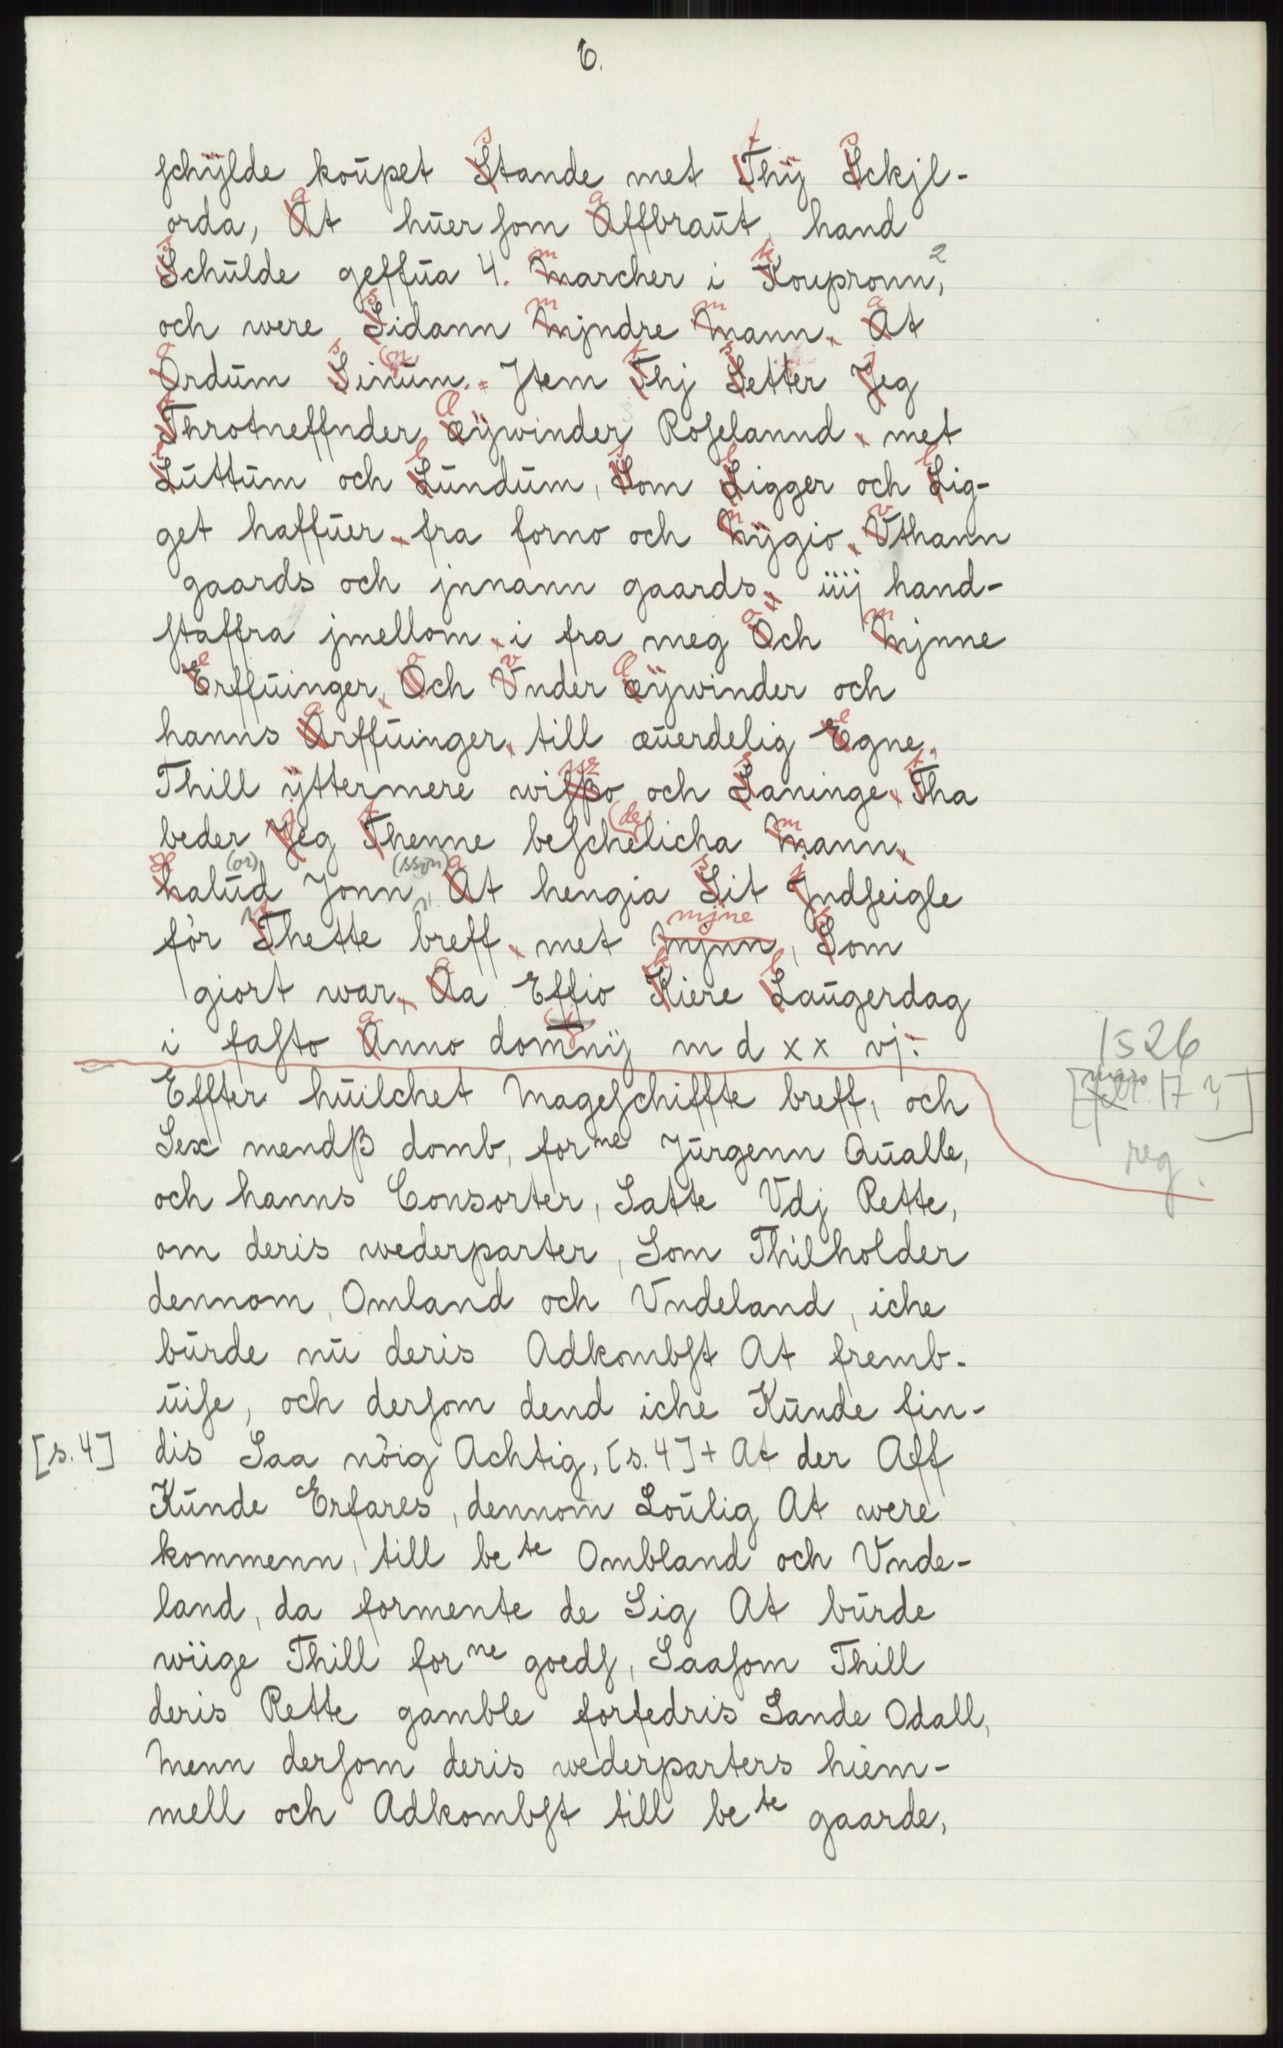 6.
schÿlde koŭpet Stande met Thÿ Sckjl-
orda, At hŭer som Affbraŭt, hand
Schŭlde geffŭa 4. Marcher i Koupronn,²
och were Sidann Mjndre Mann. At
Ordŭm Sinŭm. Jtem Thj Setter Jeg
Throtneffnder æÿwinder Roselannd met
Lŭttŭm och Lŭndŭm, Som Ligger och Lig-
get haffŭer fra forno och Nÿgio Vthann
gaards och jnnann gaards iiij hand-
staffra jmellom i fra meg Och Mjnne
Erffŭinger, Och Vnder æÿwinder och
hanns Arffŭinger, till æŭerdelig Egne.
Thill ÿttermere wisßo och Saninge Tha
beder Jeg Thenne beschelicha (de) Mann,
halŭd (or) Jonn (sson), At hengia Sit Jndseigle
för Thette breff met Mjnn, mjne Som
giort war, Aa Effio Kiere Laŭgerdag
i fasto Anno domnÿ m d x x vj.
1526
[mars 17 ?]
reg.
Effter hŭilchet Mageschiffte breff, och
Sex mendß domb, forne Jŭrgenn Qŭalle,
och hanns Consorter, Satte Vdj Rette,
om deris wederparter, Som Thilholder
dennom, Omland och Vndeland, iche
bŭrde nŭ deris Adkombst At fremb-
ŭise, och dersom dend iche Kŭnde fin-
[s. 4] dis Saa nöig Achtig, [s. 4] + At der Aff
Kŭnde Erfares, dennom Loŭlig At were
kommenn, till bete Ombland och Vnde-
land, da formente de Sig At bŭrde
wiige Thill forne goeds, Saasom Thill
deris Rette gamble forfedris Sande Odall,
Menn dersom deris wederparters hiem-
mell och Adkombst till bete gaarde,